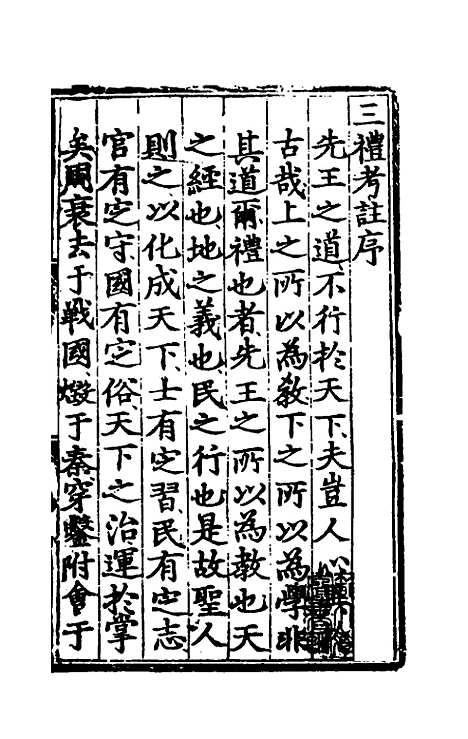 三禮考註序
先王之道不行於天下夫豈人
古哉上之所以為教下之所以為學非
其道爾禮也者先王之所以為教也天
之經也地之義也民之行也是故聖人
則之以化成天下士有定習民有定志
官有定守國有定俗天下之治運於掌
矣周衰去于戰國燬于秦穿鑿附會于